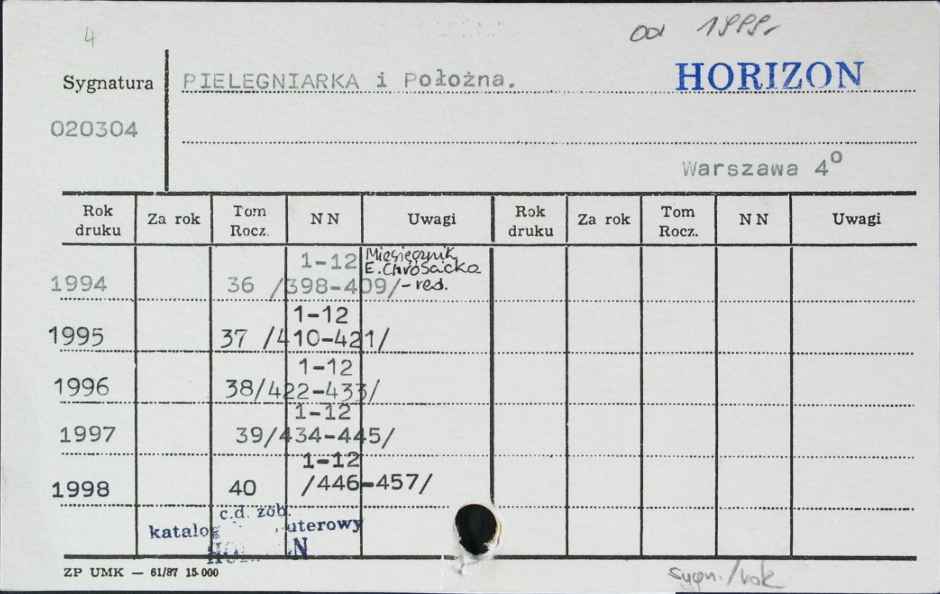 4
od 1999r
Sygnatura PIELEGNIARKA i Położna. HORIZON
020304
Warszawa 4°
Rok druku Za rok Tom Rocz. NN Uwagi Rok druku Za rok Tom Rocz. NN Uwagi
1-12 Miesięcznik
E. Chrosicka
1994 36 /398-409/ -red.
1-12
1995 37 /410-421/
1-12
1996 38/422-433/
1-12
1997 39/434-445/
1-12
1998 40 /446-457/
c.d. zob.
katalog uterowy
ZP UMK — 61/87 15 000
sygn./rok